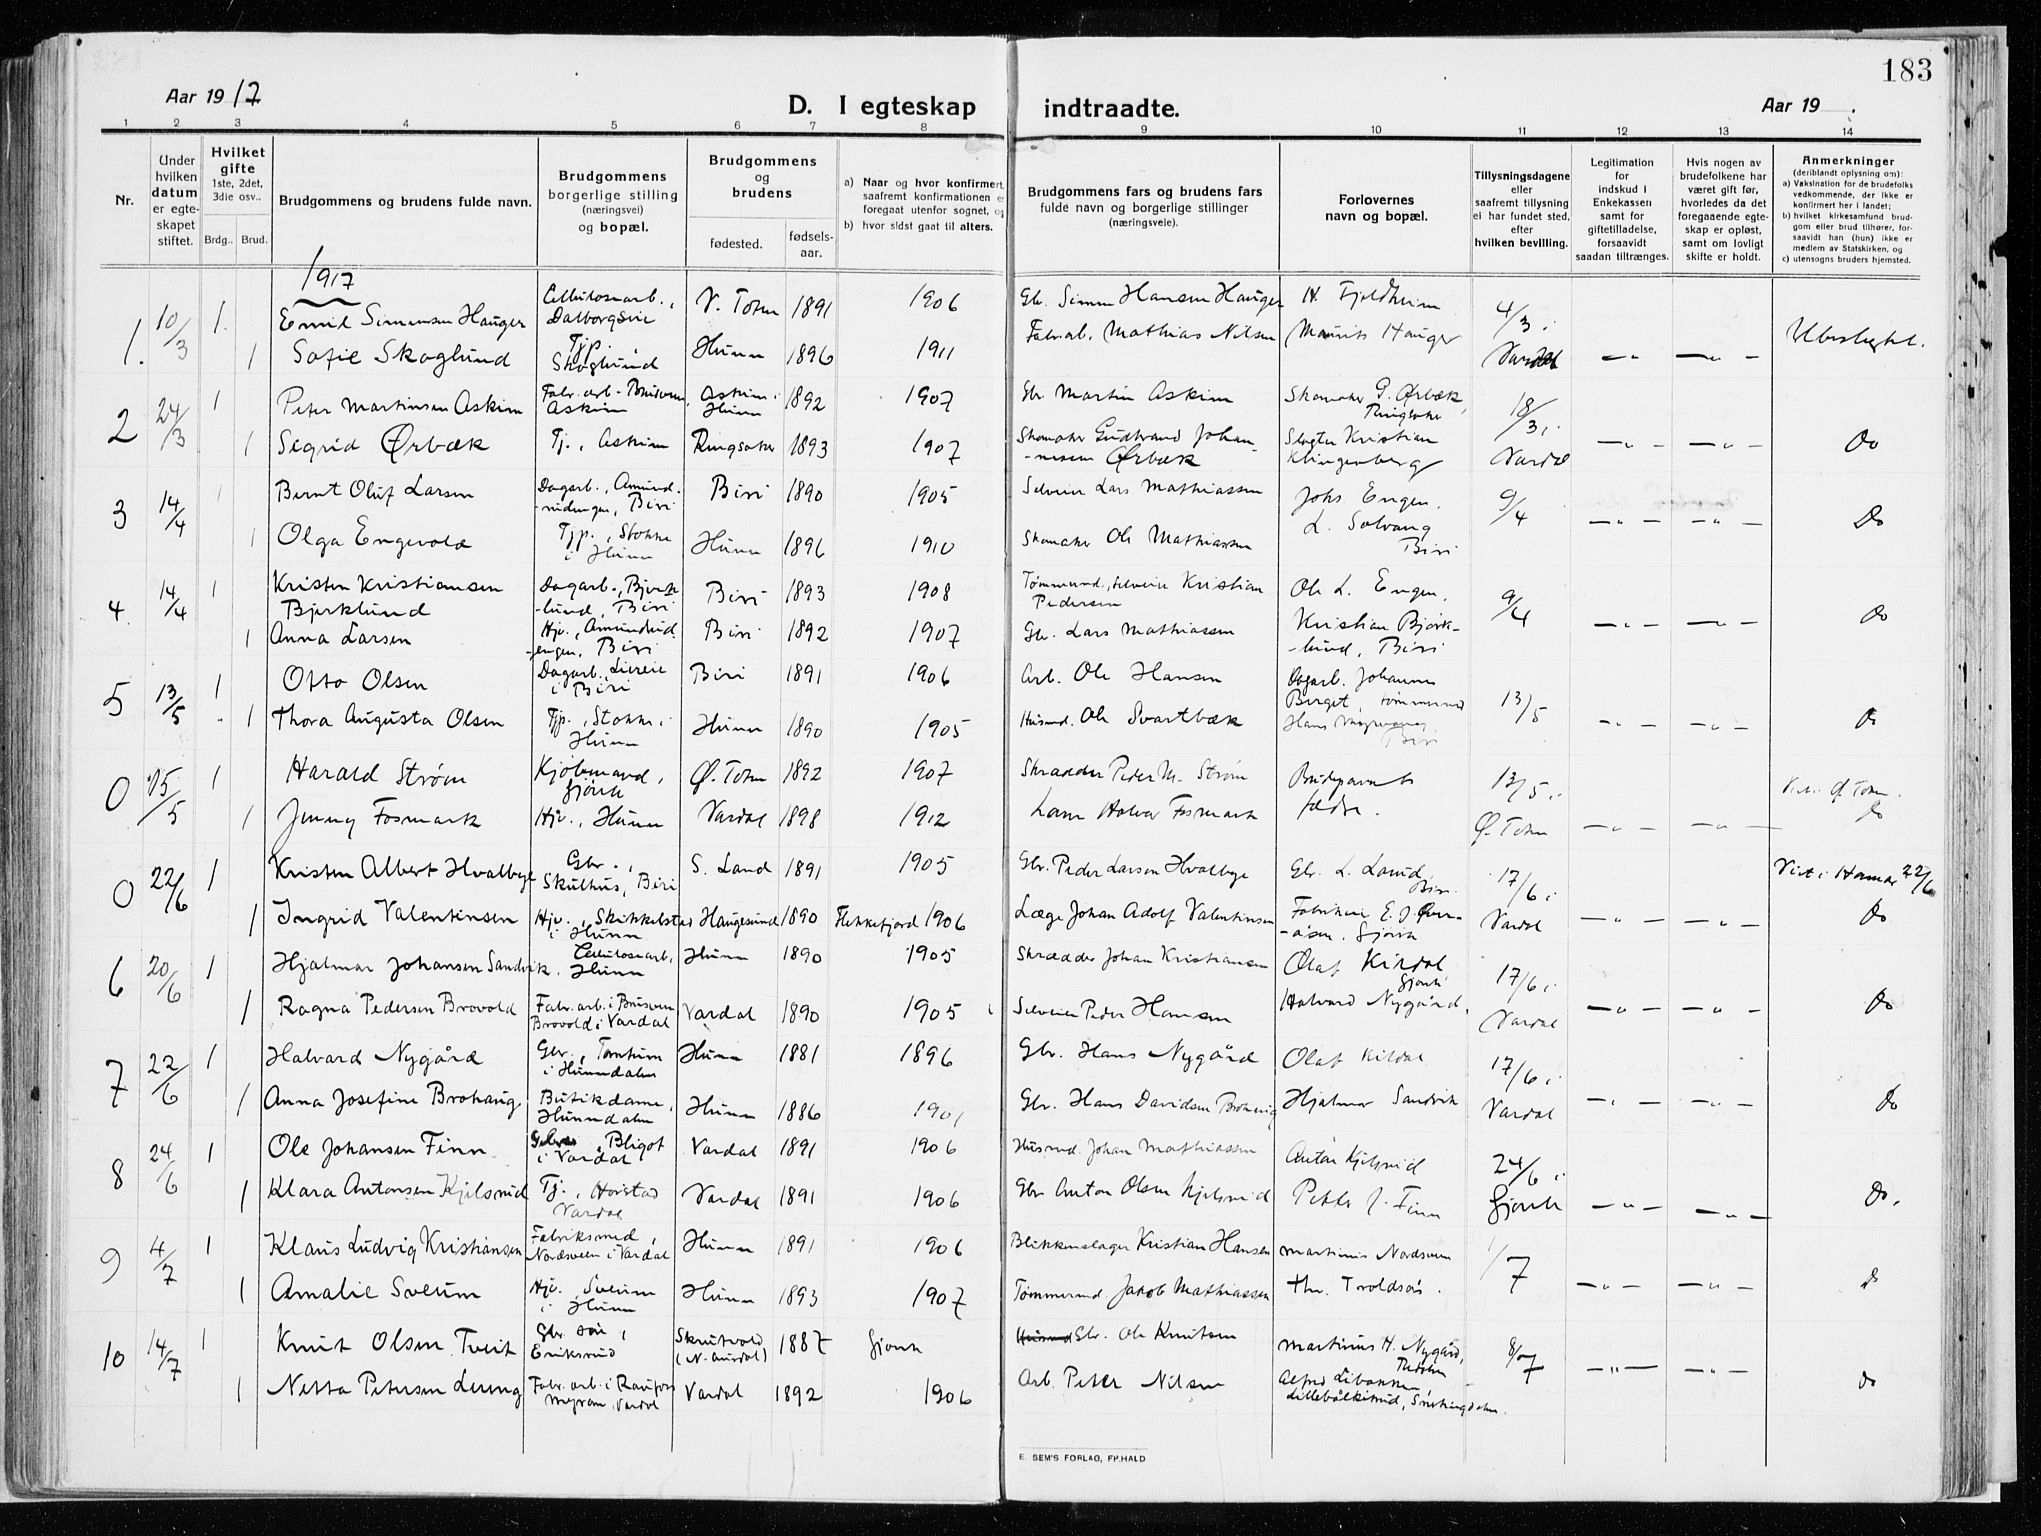 183
Aar 1917
D. I egteskap indtraadte.
Aar 19 .
1 2 3 4 5 6 7 8 9 10 11 12 13 14
Nr.
Under hvilken datum er egteskapet stiftet.
Hvilket gifte 1ste, 2det, 3die osv..
Brdg.. Brud.
Brudgommens og brudens fulde navn.
Brudgommens borgerlige stilling (næringsvei) og bopæl.
Brudgommens og brudens
fødested. fødselsaar.
a) Naar og hvor konfirmert, saafremt konfirmationen er foregaat utenfor sognet, og
b) hvor sidst gaat til alters.
Brudgommens fars og brudens fars fulde navn og borgerlige stillinger (næringsveie).
Forlovernes navn og bopæl.
Tillysningsdagene eller saafremt tillysning ei har fundet sted, efter hvilken bevilling.
Legitimation for indskud i Enkekassen samt for giftetilladelse, forsaavidt saadan tiltrænges.
Hvis nogen av brudefolkene har været gift før, hvorledes da det foregaaende egteskap er opløst, samt om lovligt skifte er holdt.
Anmerkninger (deriblandt oplysning om):
a) Vaksination for de brudefolks vedkommende, der ikke er konfirmert her i landet;
b) hvilket kirkesamfund brudgom eller brud tilhører, forsaavidt han (hun) ikke er medlem av Statskirken, og
c) utensogns bruders hjemsted.
1917
1. 10/3 1. Emil Simensen Hauger Cellulosearb., Dalborgseie V. Toten 1891 1906 Gbr. Simen Hansen Hauger H. Fjeldheim 4/3 i
1 Sofie Skoglund Tjp. Skoglund Hunn 1896 1911 Fabrarb. Mathias Nilsen Maurits Hauger Vardal — " — — " — Ubeslegtet.
2 24/3 1 Peter Martinsen Askim Fabr. arb. Brusveen Askim Askim i Hunn 1892 1907 Gbr. Martin Askim Skomaker G. Ørbæk, Ringsaker 18/3 i
1 Sigrid Ørbæk Tj., Askim Ringsaker 1893 1907 Skomaker Gudbrand Johannesen Ørbæk Slagter Kristian Klingenberg Vardal — " — — " — Do
3 14/4 1 Bernt Oluf Larsen Dagarb., Amundrudengen, Biri Biri 1890 1905 Selveier Lars Mathiassen Johs. Engen, 9/4
1 Olga Engevold Tjp., Stokke i Hunn Hunn 1896 1910 Skomaker Ole Mathiassen L. Solvang Biri — " — — " — Do
4 14/4 1 Kristen Kristiansen Bjørklund Dagarb., Bjørklund, Biri Biri 1893 1908 Tømmermd., selveier Kristian Pedersen Ole L. Engen, 9/4
1 Anna Larsen Hjv., Amundrudengen, Biri Biri 1892 1907 Gbr. Lars Mathiassen Kristian Bjørklund, Biri — " — — " — Do
5 13/5 1 Otto Olsen Dagarb., i Biri Biri 1891 1906 Arb. Ole Hansen Dagarb. Johannes Berget, tømmermd 13/5
1 Thora Augusta Olsen Tjp., Stokke i Hunn Hunn 1890 1905 Husmd. Ole Svartbæk Hans Myrvang Biri — " — — " — Do
0 15/5 1 Harald Strøm Kjøbmand, Gjøvik Ø. Toten 1892 1907 Skrædder Peder M. Strøm Brudeparrets fædre. 13/5 i
1 Jenny Fosmark Hjv., Hunn Vardal 1898 1912 Halvor Fosmark Ø. Toten — " — — " — Viet i Ø. Toten. Do
0 22/6 1 Kristen Albert Hvalbye Gbr., Skulhus, Biri S. Land 1891 1905 Gbr. Peder Larsen Hvalbye Gbr. L. Land, Biri 17/6 i Viet i Hamar 22/6
1 Ingrid Valentinsen Hjv., Skikkelstad i Hunn Haugesund 1890 Flekkefjord 1906 Læge Johan Adolf Valentinsen Fabrikeier E. J. Gjøvik Vardal — " — — " — Do
6 20/6 1 Hjalmar Johansen Sandvik. Cellulosearb, Hunn Hunn 1890 1905 Skrædder Johan Kristiansen Olaf Kildal, Gjøvik 17/6 i
1 Ragna Pedersen Brovold Fabr. arb. i Brusveen Brovold i Vardal Vardal 1890 1905 Selveier Peder Hansen Halvard Nygård. Vardal — " — — " — Do
7 22/6 1 Halvard Nygård Gbr., i Hunndalen Hunn 1881 1896 Gbr. Hans Nygård Olaf Kildal 17/6 i
1 Anna Josefine Brohaug Butikdame, Hunndalen Hunn 1886 1901 Gbr. Hans Davidsen Brohaug Hjalmar Sandvik Vardal — " — — " — Do
8 24/6 1 Ole Johansen Finn Bligot i Vardal Vardal 1891 1906 Husmd. Johan Mathiassen Anton Kjelsrud 24/6 i
1 Klara Antonsen Kjelsrud Tj., Horstad Vardal Vardal 1891 1906 Gbr Anton Olsen Kjelsrud Petter J. Finn Gjøvik — " — — " — Do.
9 4/7 1 Klaus Ludvig Kristiansen Fabriksmed, Nordsveen i Vardal Hunn 1891 1906 Blikkenslager Kristian Hansen Martinus Nordsveen 1/7
1 Amalie Sveum Hjv., Sveum i Hunn Hunn 1893 1907 Tømmermd. Jakob Mathiassen Chr. Troldsås. — " — — " — Do
10 14/7 1 Knut Olsen Tveit Gbr søn, Eriksrud Skrutvold (N. Aurdal) 1887 Gjøvik Gbr. Ole Knutsen Martinus H. Nygård, 8/7
1 Netta Petersen Leung Fabr. arb. i Raufoss Myrom, Vardal Vardal 1892 1906 Arb. Peter Nilsen Alfred Libakken — " — — " — do
E. SEM'S FORLAG, FR.HALD